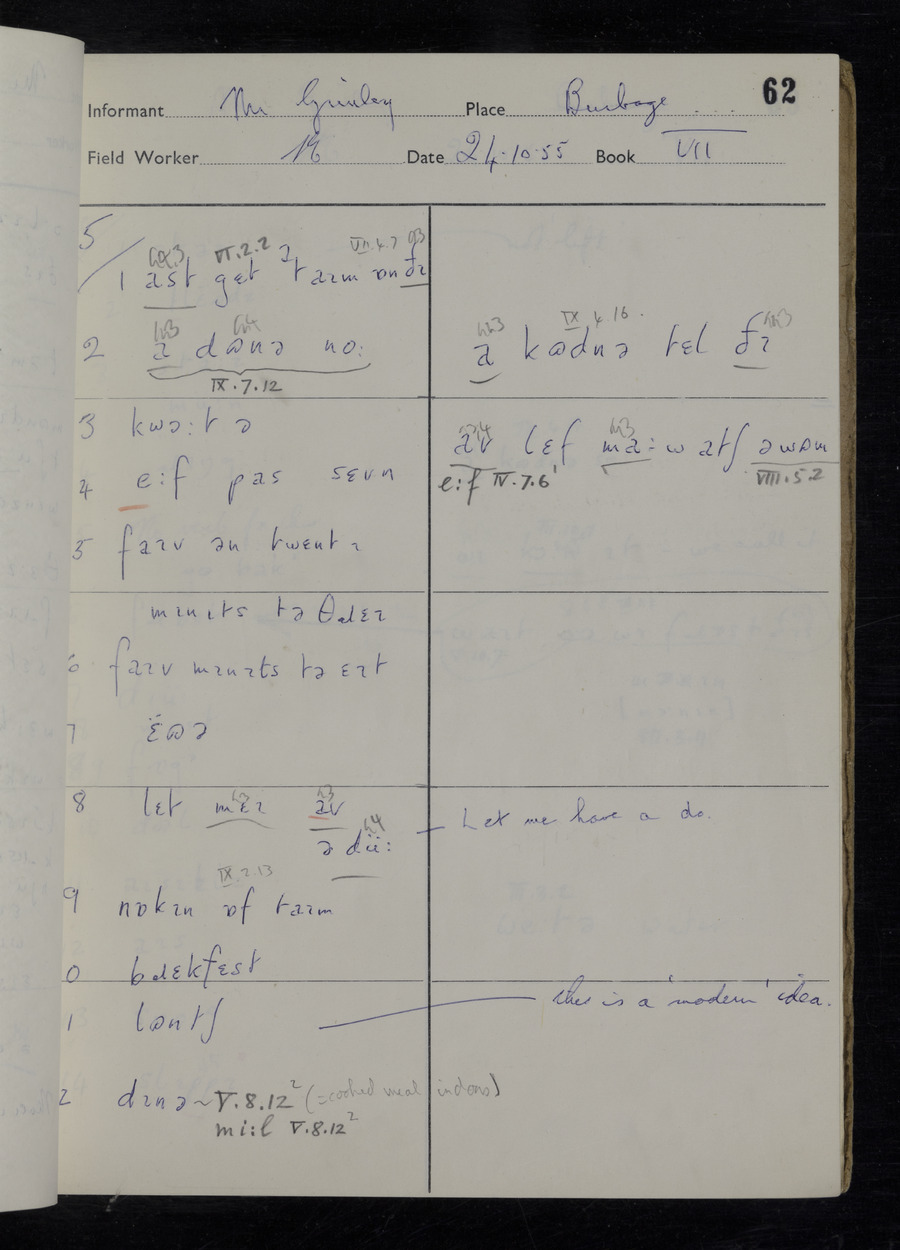 62
Informant Mr Place Burbage
Field Worker Date 24·10·55 Book VII
5
VI.2.2 VII.4.7
1 ast get taɪm ɒn
2 a dʊnə no: a kʊdnə tɛl
IX.7.12 IX 4 16.
3 kwə:tə av lɛf ma: watʃ əwɒm
4 e:f pas sɛvn e:f IV.7.6¹ VIII.5.2
5 faɪv ən twentɪ
mɪnɪts tə
6 faɪv mɪnɪts tə ɛɪt
7
8 lɛt mɛɪ av Let me have a do.
ə dü:
IX.2.13
9 nɒkɪn ɒf taɪm
0 bɹɛkfəst
1 lʊntʃ this is a 'modern' idea.
2 dɪnə ~ V.8.12² (=cooked meal indoors)
mi:l V.8.12²